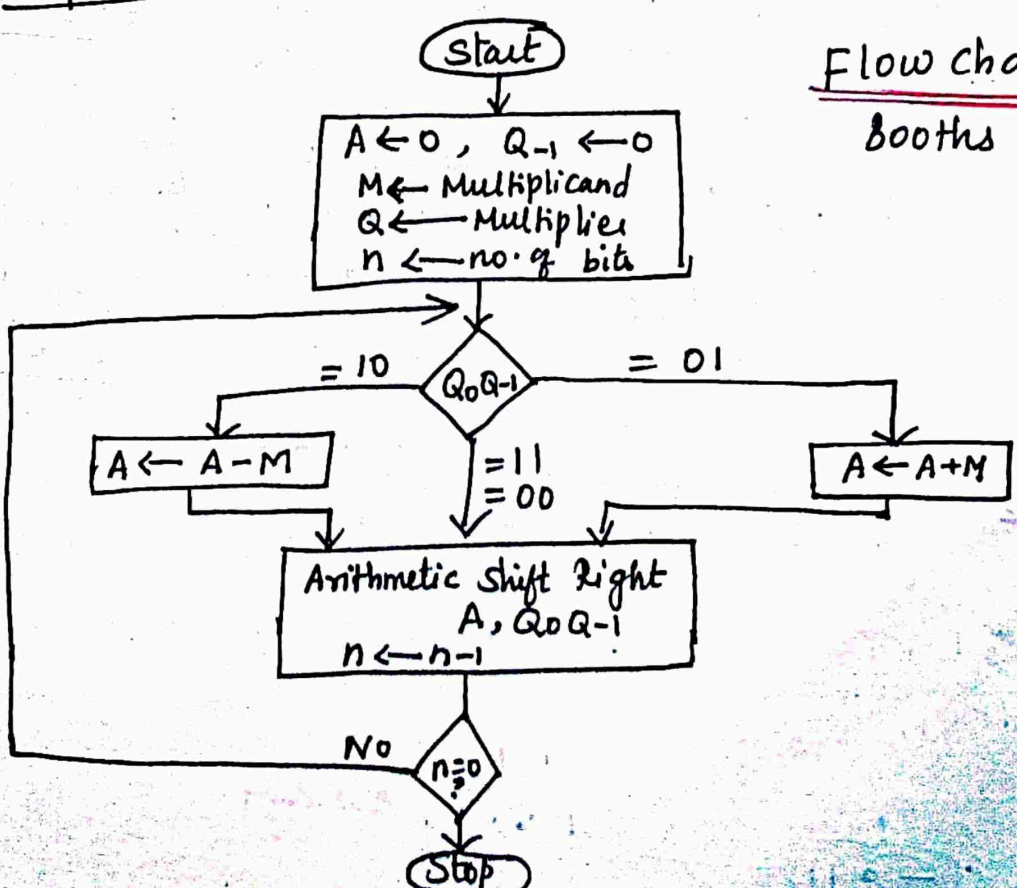 Start
Flow
Booths
A ← 0 , Q-1 ← 0
M ← Multiplicand
Q ← Multiplier
n ← no. of bits
= 10
Q0Q-1
= 01
A ← A - M
= 11
= 00
A ← A+M
Arithmetic Shift Right
A, Q0 Q-1
n ← n-1
No
n=0
?
Stop